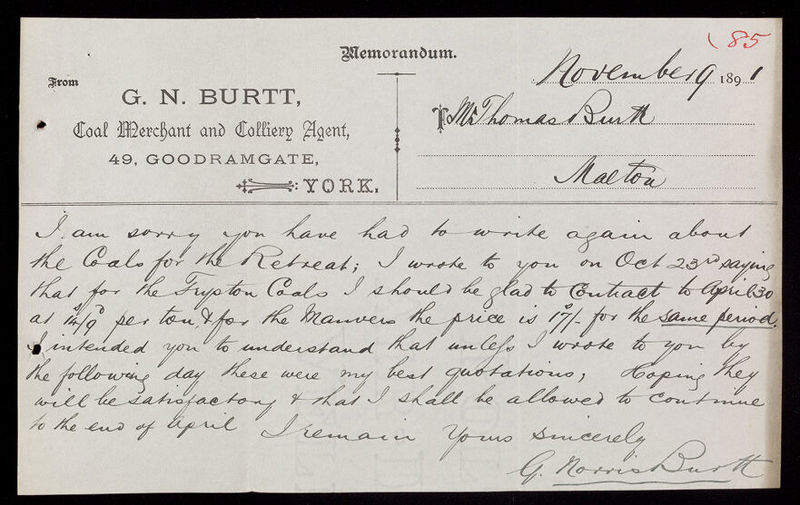 85
Memorandum.
From
G. N. BURTT,
Coal Merchant and Colliery Agent,
49, GOODRAMGATE,
YORK.
November 9 1891
To Mr Thomas Burtt
Malton
I am sorry you have had to write again about
the Coals for the Retreat; I wrote to you on Oct 23rd saying
that for the Fryston Coals I should be glad to Contract to April 30
at 14s/9d per ton, & for the Manvers the price is 17s/- for the same period.
I intended you to understand that unless I wrote to you by
the following day these were my best quotations; Hoping they
will be satisfactory & that I shall be allowed to continue
to the end of April I remain Yours sincerely
G. Norris Burtt